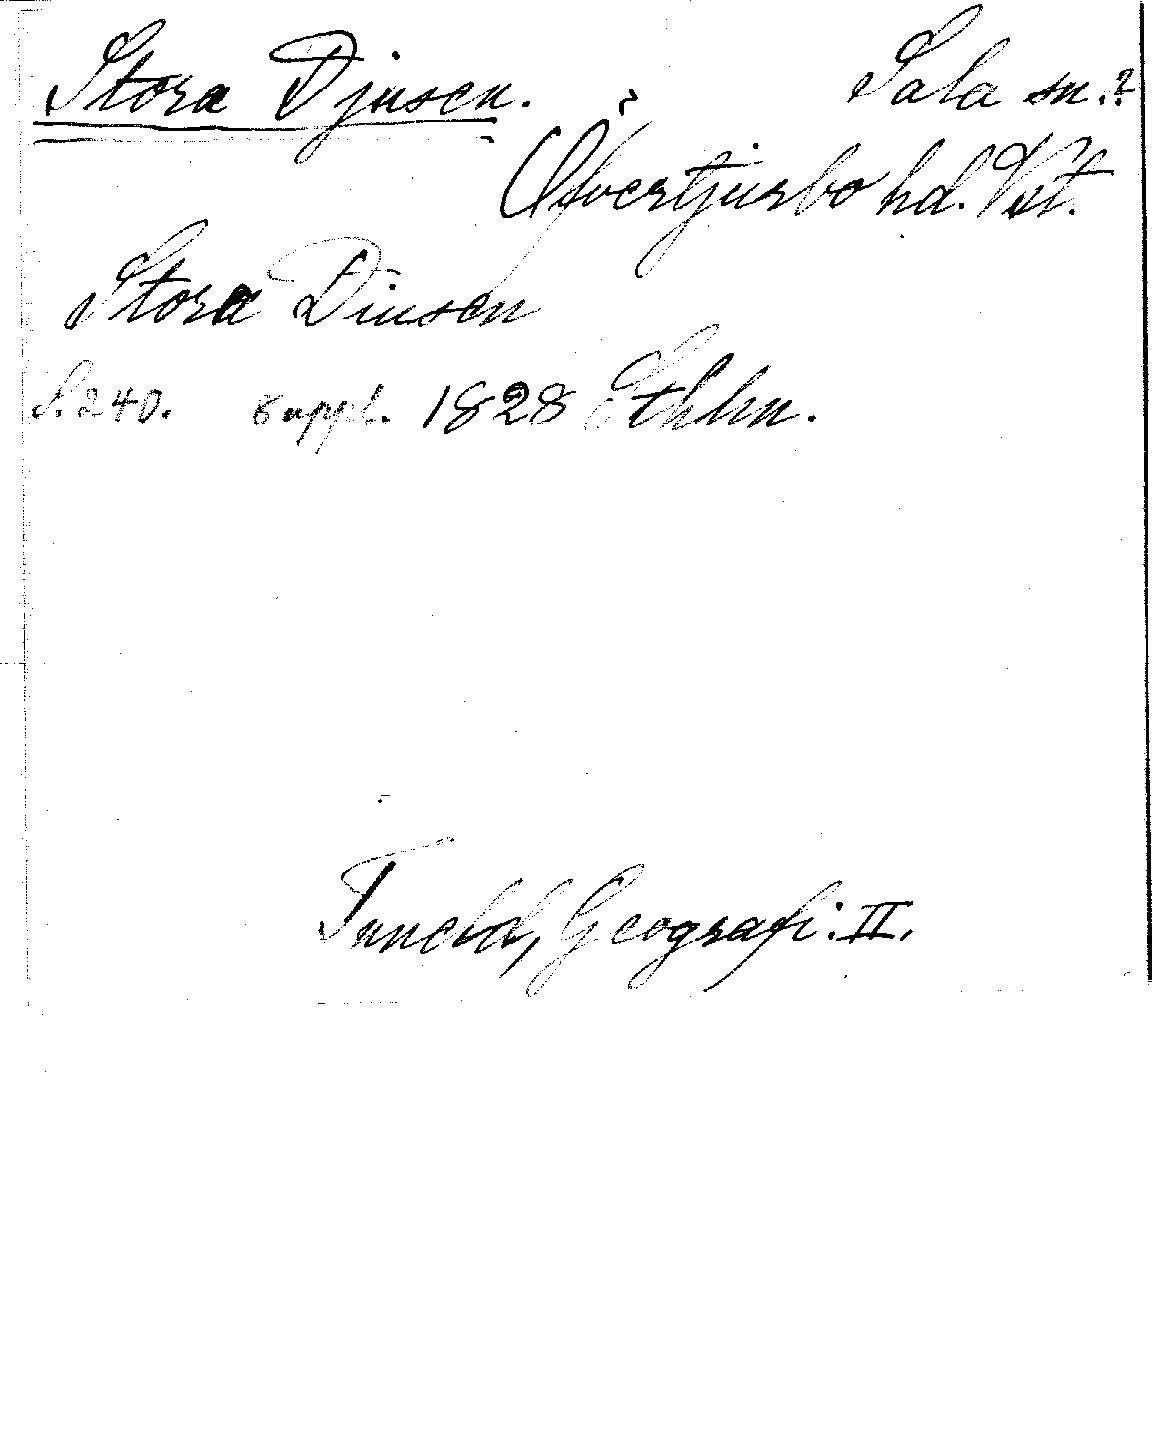 Stora Djusen. ? Sala sn.?
Öfvertjurbo hd. Vst.
Stora Diusen
S. 240. suppl. 1828 Sthlm.
Tuneld, Geografi. II.